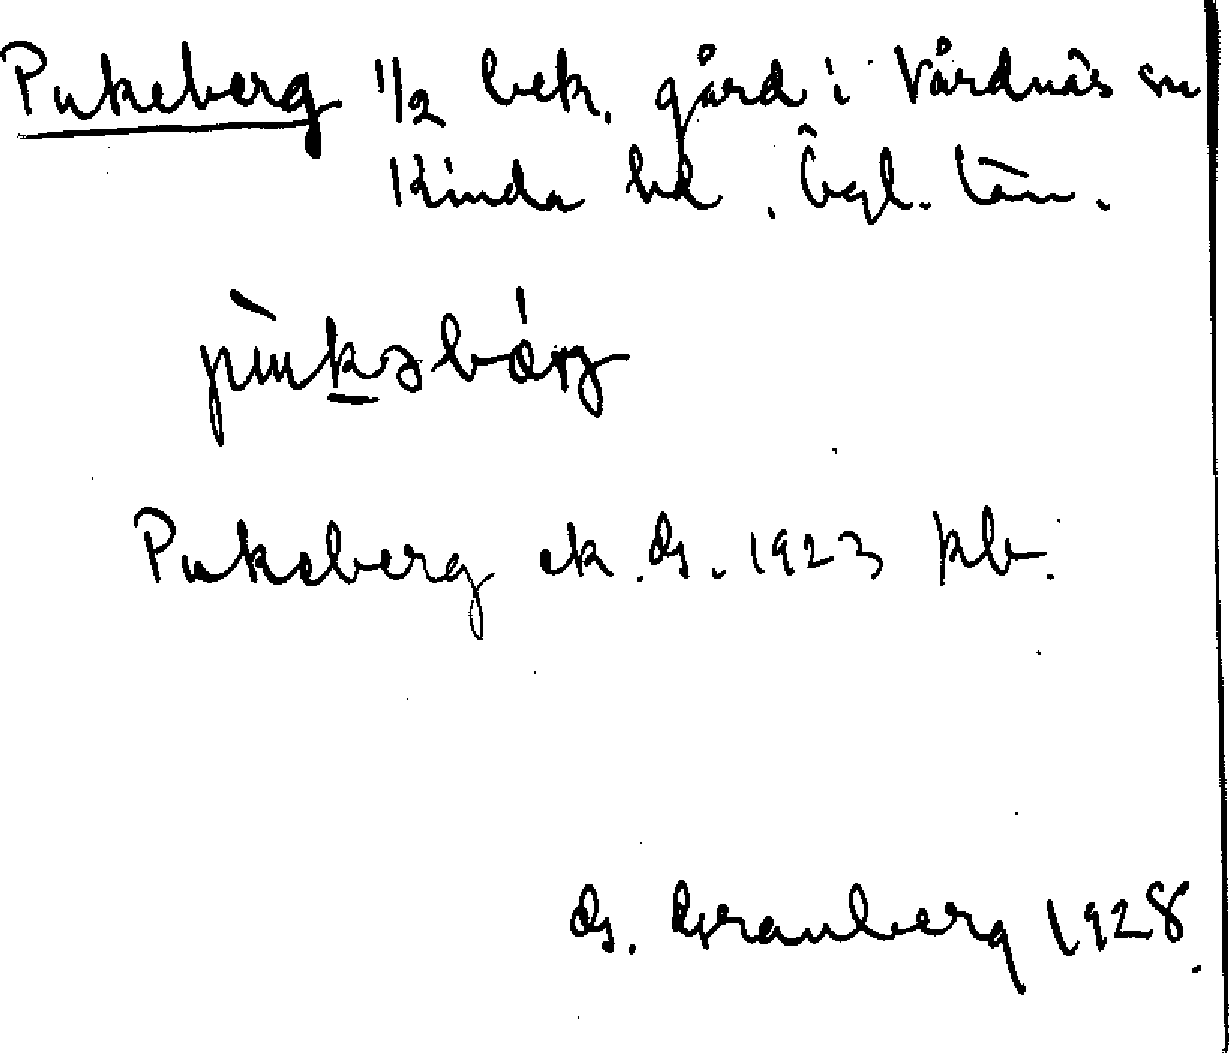 Pukeberg 1/2 bek. gård i Vårdnäs sn
Kinda hd. Ögl. län.
Pukeberg ek. G. 1923 kb.
G. Granberg 1928.